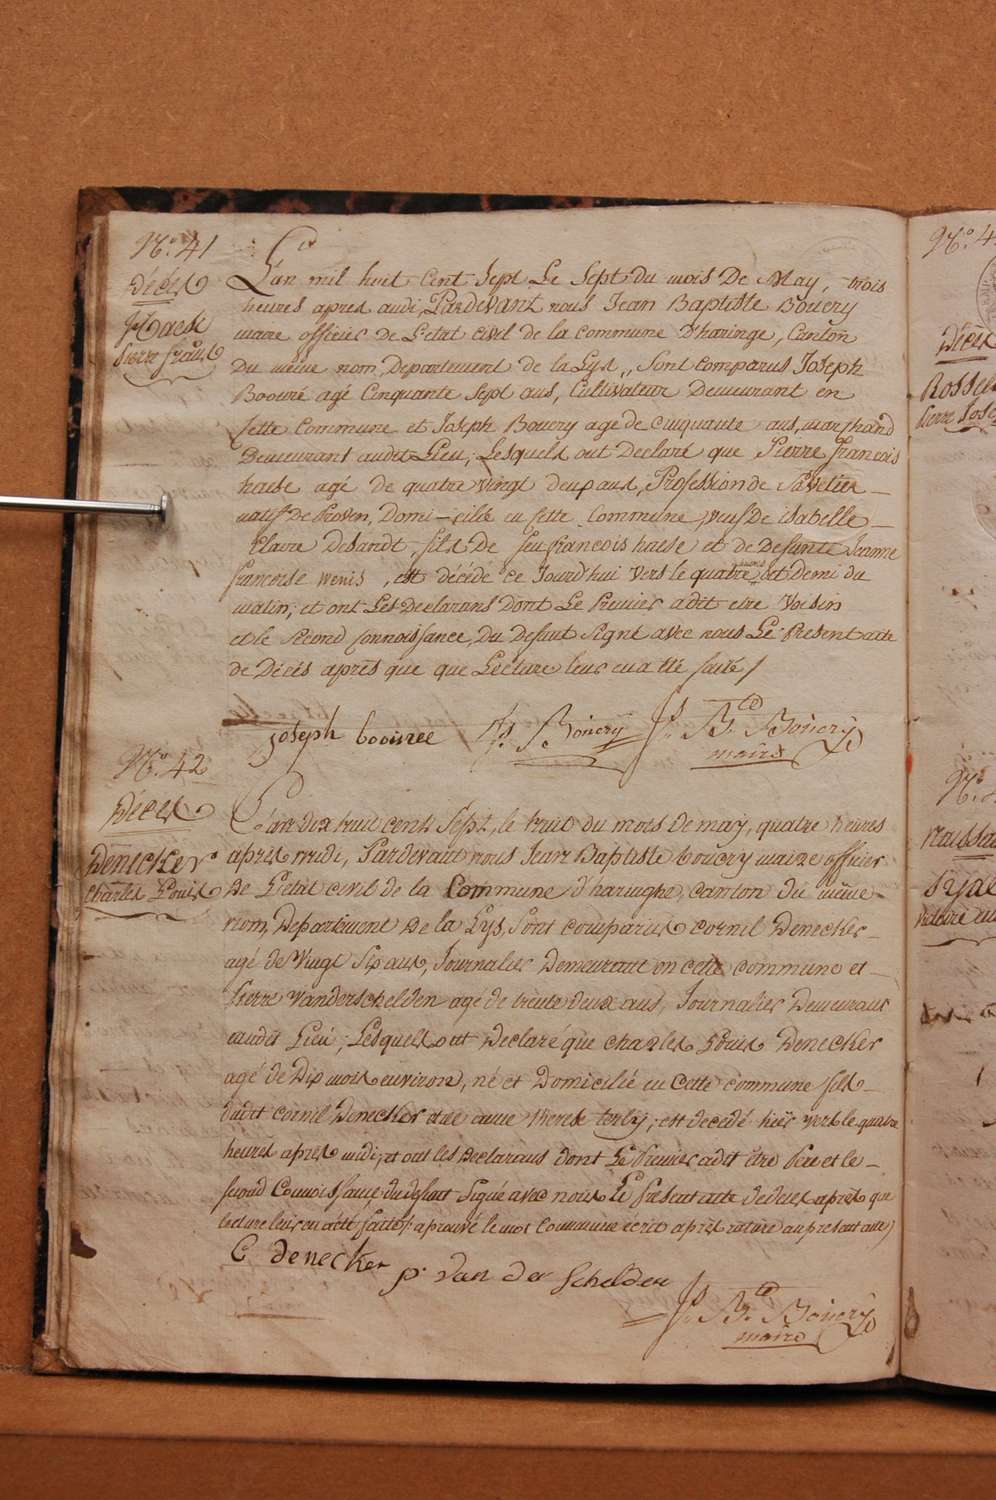 No. 41
Décès
Haese
Pierre frans
L'an mil huit Cent Sept Le Sept du mois De May, trois
heures apres midi, Pardevant nous Jean Baptiste Bouery
maire officier de L'etat civil de la commune D'haringe, Canton
Du même nom, Departement de la Lys,, Sont comparus Joseph
Boouré agé Cinquante Sept ans, Cultivateur Demeurant en
Cette Commune et Joseph Bouery age de Cinquante ans, marchand
Demeurant audit Lieu, Lesquels ont Declaré que Pierre Francois
haese agé de quatre vingt deux ans, Profession de Savetier
natif De Proven, Domi-cilié en Cette Commune, veuf De isabelle
Claire Debandt, fils De feu francois haese et de Defunte Jeanne
francoise wenis, est décédé ce Jourd'hui vers le quatre et Demi du
matin; et ont Les declarans Dont Le Premier a dit etre Voisin
et le Second Connoissance, Du Defunt Signé avec nous Le Present acte
de Décès après que que Lecture leur en a été faite /
joseph boouree Js. Bouery Js. Bte. Bouery
maire
No. 42
Décès
Denecker
Charles Louis
L'an dix huit cent Sept, le huit du mois De may, quatre heures
après midi, Pardevant nous Jean Baptiste bouery maire officier
De L'etat civil de la Commune d'haringhe, canton du même
nom, Departement De la Lys, Sont comparus cornil Denecker
agé de Vingt Six ans, Journalier Demeurant en cette commune et
Pierre Vanderschelden agé de trente deux ans, Journalier Demeurant
audit Lieu; Lesquels ont Declaré que charles Louis Denecker
agé de Dix mois environ, né et Domicilié en Cette commune fils
dudit cornil Denecker et de anne therese torby, est decédé hier vers le quatre
heures après midi, et ont les Declarans dont Le Premier a dit être Pere et le
second Connoissance du defunt Signé avec nous Le Present acte de deces après que
lecture leur en a été faite /: aprouvé le mot Commune écrit après rature au present acte /
C denecker p. van der Schelden
Js. Bte. Bouery
maire
No. 4
Décès
Rossel
Pierre Jose
No.